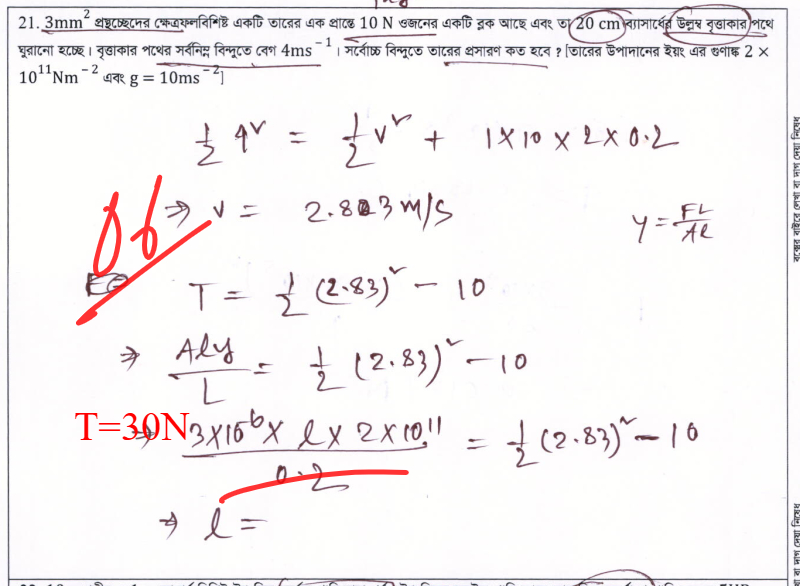 21. 3mm² প্রস্থচ্ছেদের ক্ষেত্রফলবিশিষ্ট একটি তারের এক প্রান্তে 10 N ওজনের একটি ব্লক আছে এবং তা 20 cm ব্যাসার্ধের উল্লম্ব বৃত্তাকার পথে
ঘুরানো হচ্ছে। বৃত্তাকার পথের সর্বনিম্ন বিন্দুতে বেগ 4ms⁻¹। সর্বোচ্চ বিন্দুতে তারের প্রসারণ কত হবে? [তারের উপাদানের ইয়ং এর গুণাঙ্ক 2 ×
10¹¹Nm⁻² এবং g = 10ms⁻²]
½ 4² = ½ v² + 1×10×2×0.2
⇒ v = 2.83 m/s
Y = FL/Al
06
T = ½ (2.83)² − 10
⇒ Aly/L = ½ (2.83)² − 10
T=30N
⇒ 3×10⁻⁶ × l × 2×10¹¹ / 0.2 = ½ (2.83)² − 10
⇒ l =